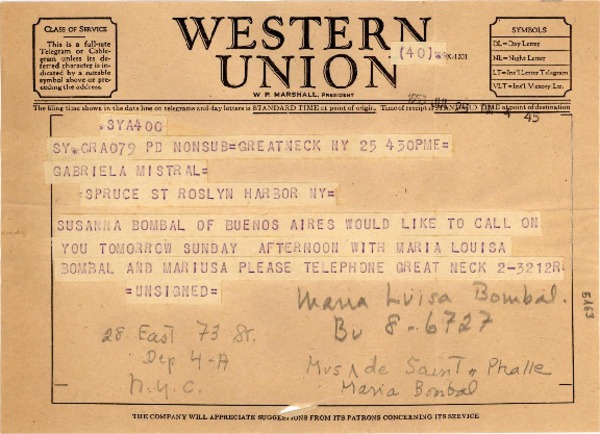 CLASS OF SERVICE
This is a full-rate
Telegram or Cable-
gram unless its de-
ferred character is in-
dicated by a suitable
symbol above or pre-
ceding the address.
WESTERN
UNION
W. P. MARSHALL, PRESIDENT
(40)
SYMBOLS
DL=Day Letter
NL=Night Letter
LT=Int'l Letter Telegram
VLT=Int'l Victory Ltr.
The filing time shown in the date line on telegrams and day letters is STANDARD TIME at point of origin. Time of receipt is STANDARD TIME at point of destination
4 45
.SYA400
SY.GRA079 PD NONSUB=GREATNECK NY 25 430PME=
GABRIELA MISTRAL=
SPRUCE ST ROSLYN HARBOR NY=
SUSANNA BOMBAL OF BUENOS AIRES WOULD LIKE TO CALL ON
YOU TOMORROW SUNDAY AFTERNOON WITH MARIA LOUISA
BOMBAL AND MARIUSA PLEASE TELEPHONE GREAT NECK 2-3212R
=UNSIGNED=
Maria Luisa Bombal.
Bu 8-6727
28 East 73 St.
Dep 4-A
N.Y.C.
Mrs de Saint Phalle
Maria Bombal
5163
THE COMPANY WILL APPRECIATE SUGGESTIONS FROM ITS PATRONS CONCERNING ITS SERVICE